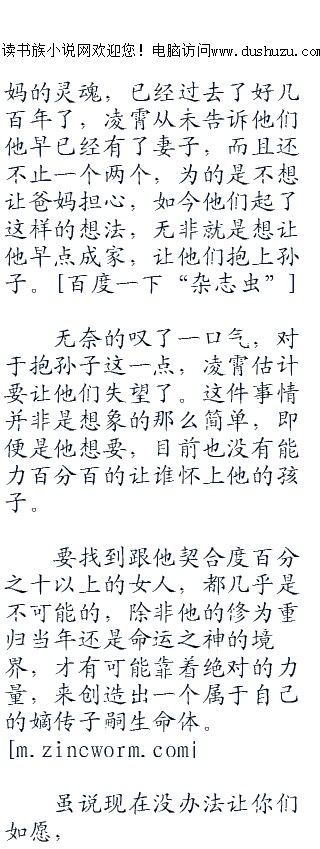 读书族小说网欢迎您！电脑访问www.dushuzu.com
妈的灵魂，已经过去了好几
百年了，凌霄从未告诉他们
他早已经有了妻子，而且还
不止一个两个，为的是不想
让爸妈担心，如今他们起了
这样的想法，无非就是想让
他早点成家，让他们抱上孙
子。[百度一下“杂志虫”]
无奈的叹了一口气，对
于抱孙子这一点，凌霄估计
要让他们失望了。这件事情
并非是想象的那么简单，即
便是他想要，目前也没有能
力百分百的让谁怀上他的孩
子。
要找到跟他契合度百分
之十以上的女人，都几乎是
不可能的，除非他的修为重
归当年还是命运之神的境
界，才有可能靠着绝对的力
量，来创造出一个属于自己
的嫡传子嗣生命体。
[m.zincworm.com]
虽说现在没办法让你们
如愿，